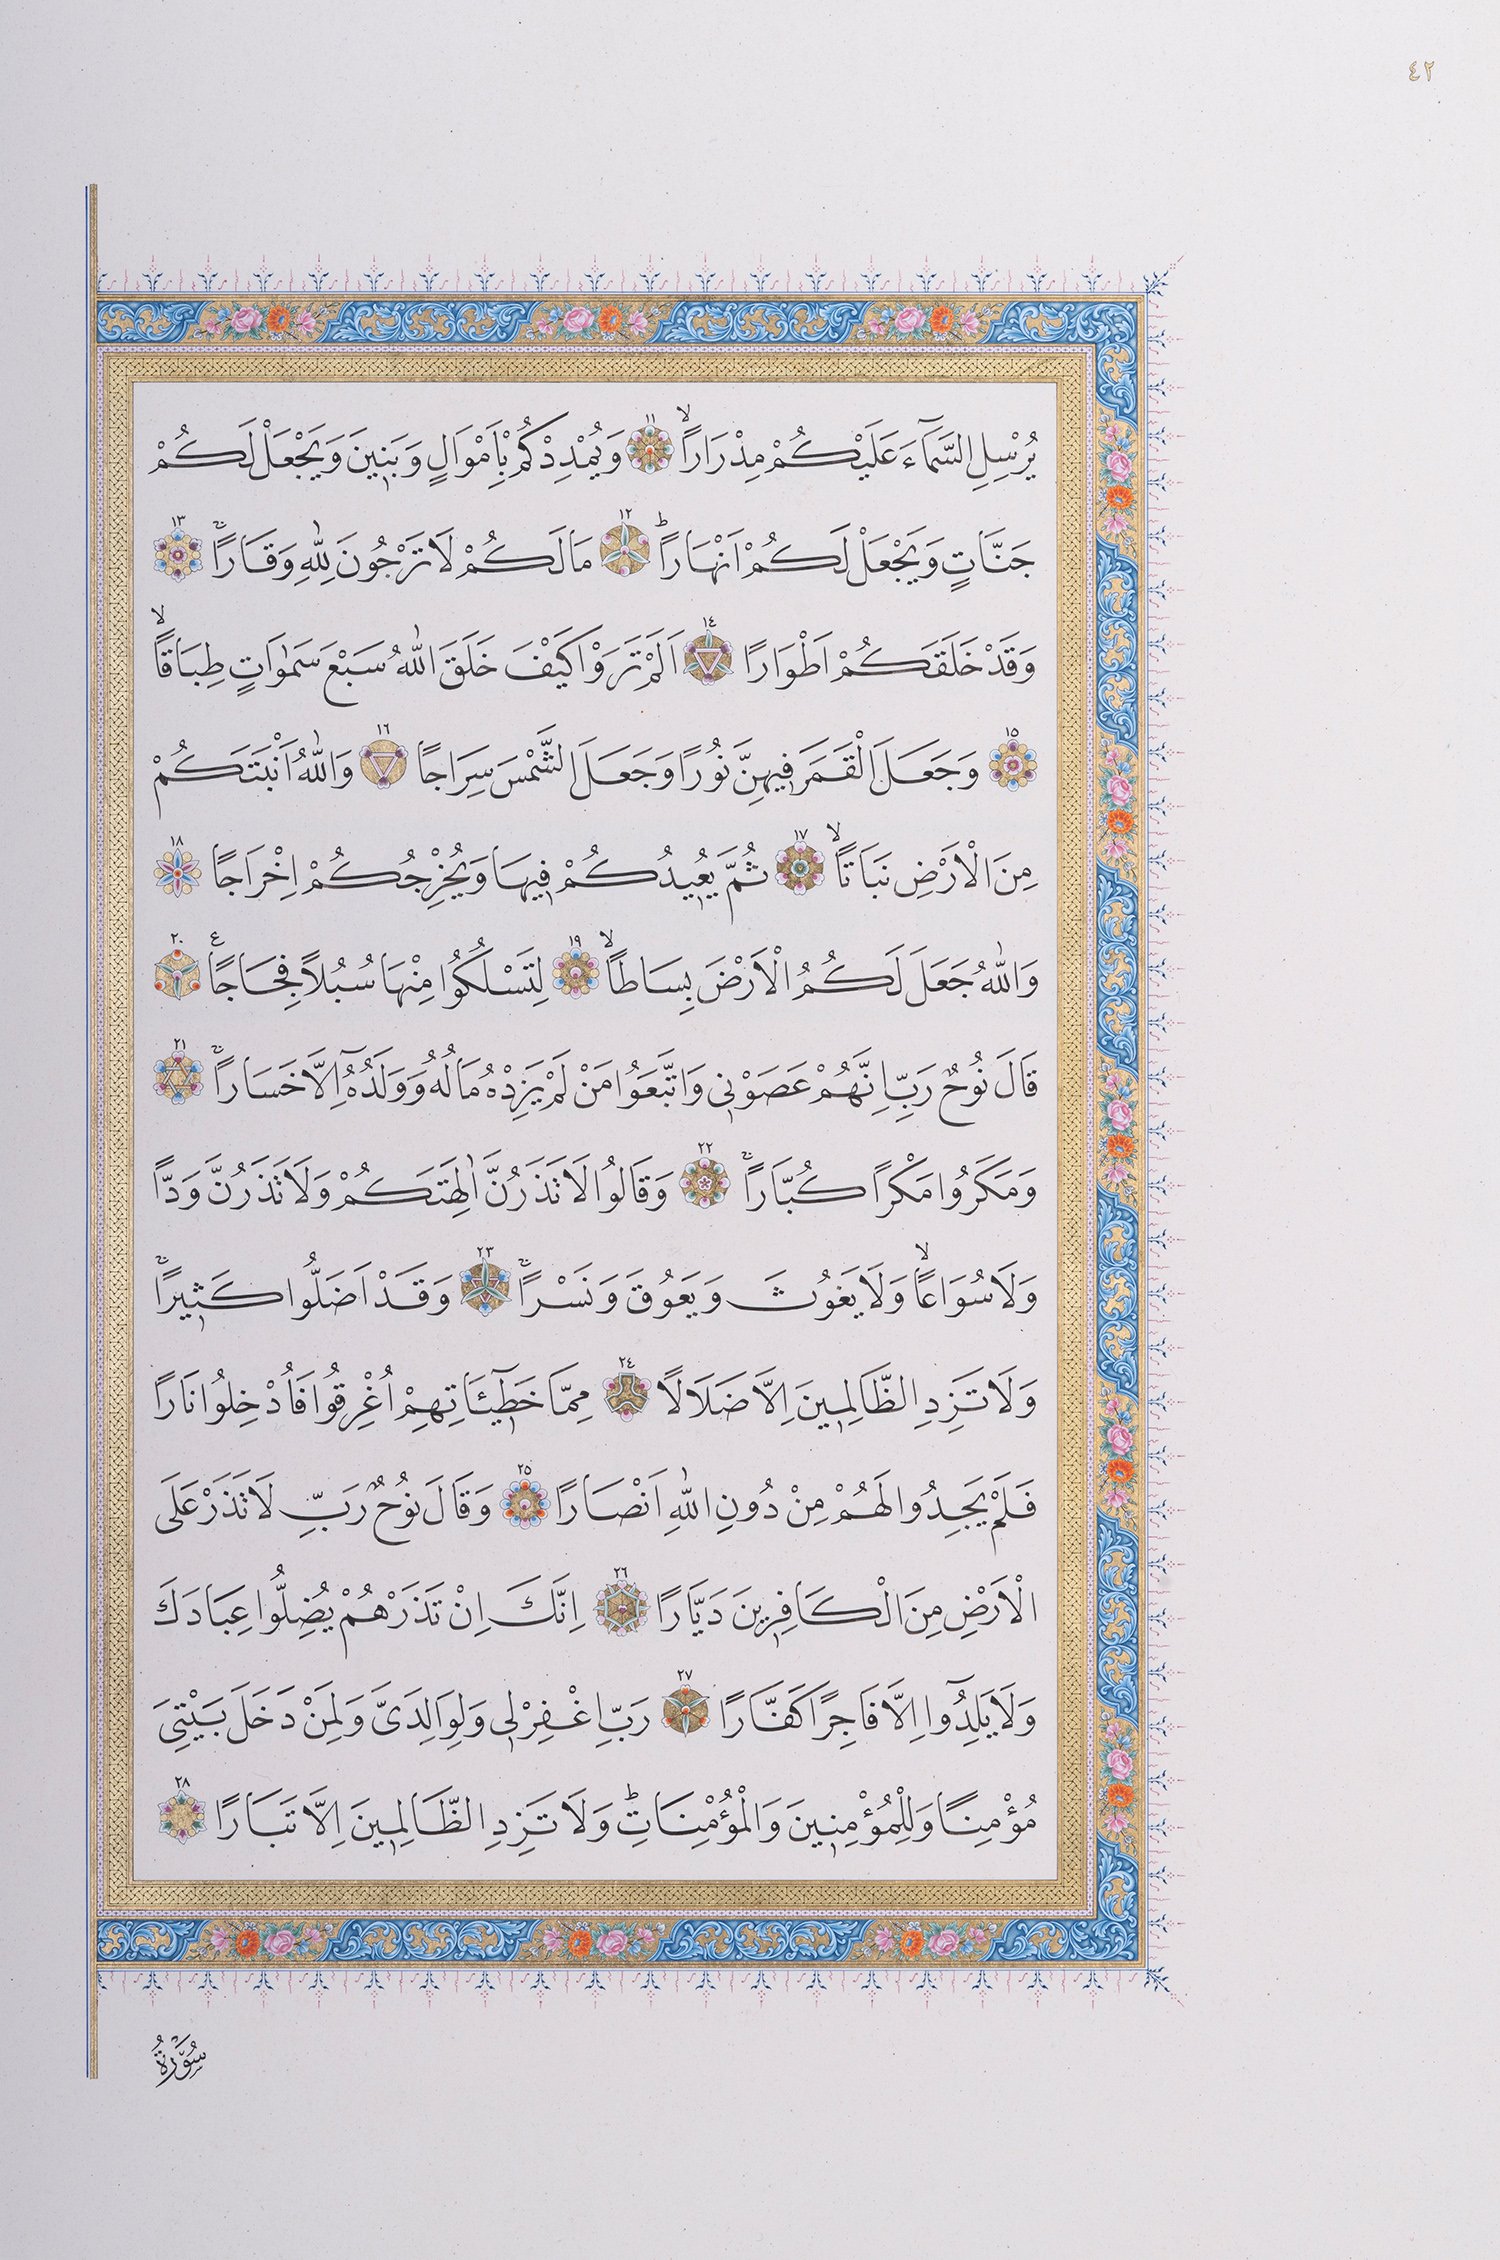 ٤٢
يُرْسِلِ السَّمَٓاءَ عَلَيْكُمْ مِدْرَارًاۙ ١١ وَيُمْدِدْكُمْ بِاَمْوَالٍ وَبَنٖينَ وَيَجْعَلْ لَكُمْ
جَنَّاتٍ وَيَجْعَلْ لَكُمْ اَنْهَارًاؕ ١٢ مَالَكُمْ لَا تَرْجُونَ لِلّٰهِ وَقَارًاۚ ١٣
وَقَدْ خَلَقَكُمْ اَطْوَارًا ١٤ اَلَمْ تَرَوْا كَيْفَ خَلَقَ اللّٰهُ سَبْعَ سَمٰوَاتٍ طِبَاقًاۙ
١٥ وَجَعَلَ الْقَمَرَ فٖيهِنَّ نُورًا وَجَعَلَ الشَّمْسَ سِرَاجًا ١٦ وَاللّٰهُ اَنْبَتَكُمْ
مِنَ الْاَرْضِ نَبَاتًاۙ ١٧ ثُمَّ يُعٖيدُكُمْ فٖيهَا وَيُخْرِجُكُمْ اِخْرَاجًا ١٨
وَاللّٰهُ جَعَلَ لَكُمُ الْاَرْضَ بِسَاطًاۙ ١٩ لِتَسْلُكُوا مِنْهَا سُبُلًا فِجَاجًاࣖ ٢٠
قَالَ نُوحٌ رَبِّ اِنَّهُمْ عَصَوْنٖي وَاتَّبَعُوا مَنْ لَمْ يَزِدْهُ مَالُهُ وَوَلَدُهُٓ اِلَّا خَسَارًاۚ ٢١
وَمَكَرُوا مَكْرًا كُبَّارًاۚ ٢٢ وَقَالُوا لَا تَذَرُنَّ اٰلِهَتَكُمْ وَلَا تَذَرُنَّ وَدًّا
وَلَا سُوَاعًاۙ وَلَا يَغُوثَ وَيَعُوقَ وَنَسْرًاۚ ٢٣ وَقَدْ اَضَلُّوا كَثٖيرًاۚ
وَلَا تَزِدِ الظَّالِمٖينَ اِلَّا ضَلَالًا ٢٤ مِمَّا خَطٖٓيـَٔاتِهِمْ اُغْرِقُوا فَاُدْخِلُوا نَارًا
فَلَمْ يَجِدُوا لَهُمْ مِنْ دُونِ اللّٰهِ اَنْصَارًا ٢٥ وَقَالَ نُوحٌ رَبِّ لَا تَذَرْ عَلَى
الْاَرْضِ مِنَ الْكَافِرٖينَ دَيَّارًا ٢٦ اِنَّكَ اِنْ تَذَرْهُمْ يُضِلُّوا عِبَادَكَ
وَلَا يَلِدُٓوا اِلَّا فَاجِرًا كَفَّارًا ٢٧ رَبِّ اغْفِرْلٖي وَلِوَالِدَيَّ وَلِمَنْ دَخَلَ بَيْتِيَ
مُؤْمِنًا وَلِلْمُؤْمِنٖينَ وَالْمُؤْمِنَاتِؕ وَلَا تَزِدِ الظَّالِمٖينَ اِلَّا تَبَارًا ٢٨
سُورَةُ